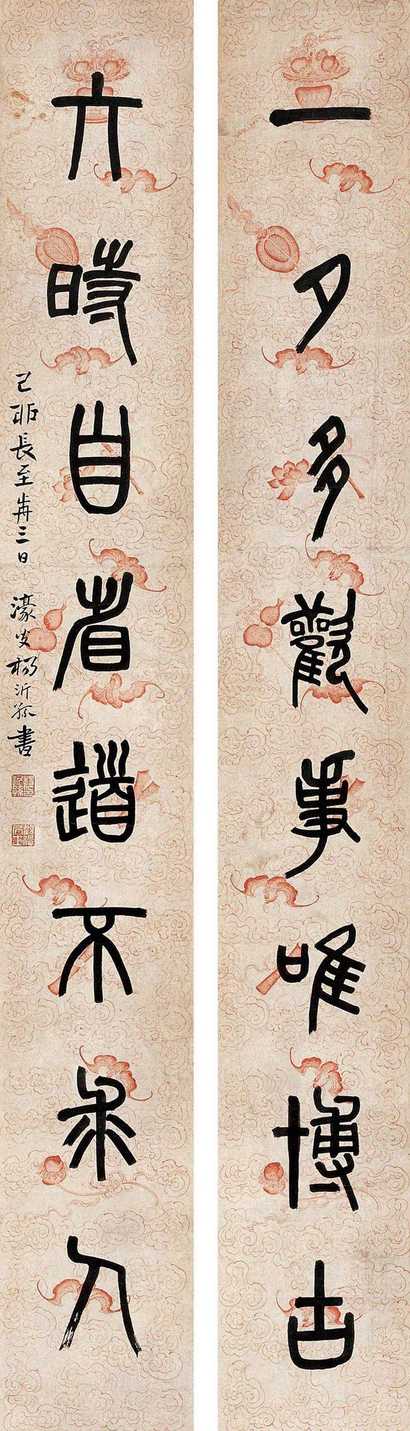 一夕多觀事唯博古
六時自省道不求人
己卯長至前三日 濠叟楊沂孫書